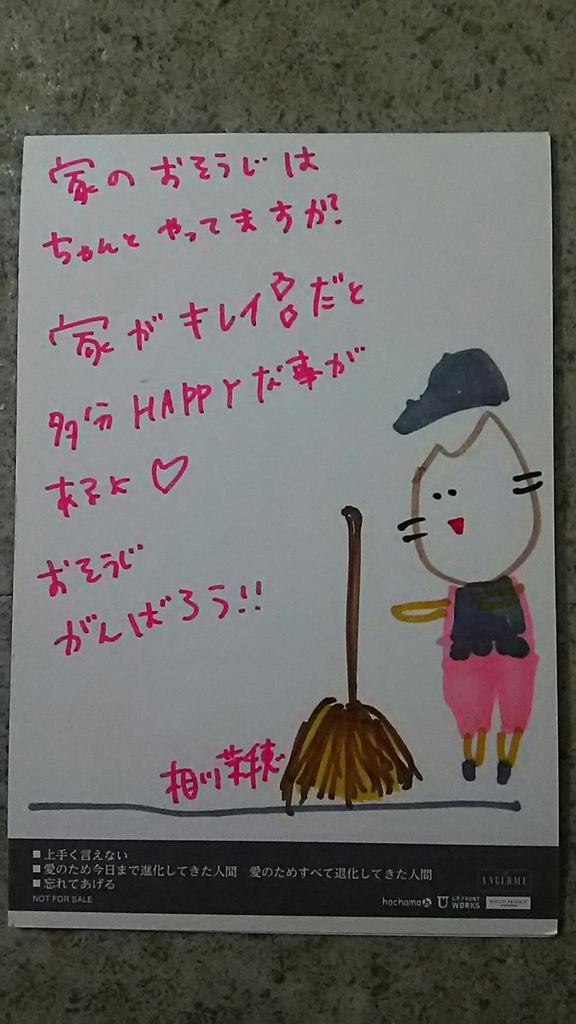 家のおそうじは
ちゃんとやってますか?
家がキレイだと
多分HAPPYな事が
あるよ♡
おそうじ
がんばろう!!
相川茉穂
■上手く言えない
■愛のため今日まで進化してきた人間 愛のためすべて退化してきた人間
■忘れてあげる
NOT FOR SALE
ANGERME
hachama
UP-FRONT WORKS